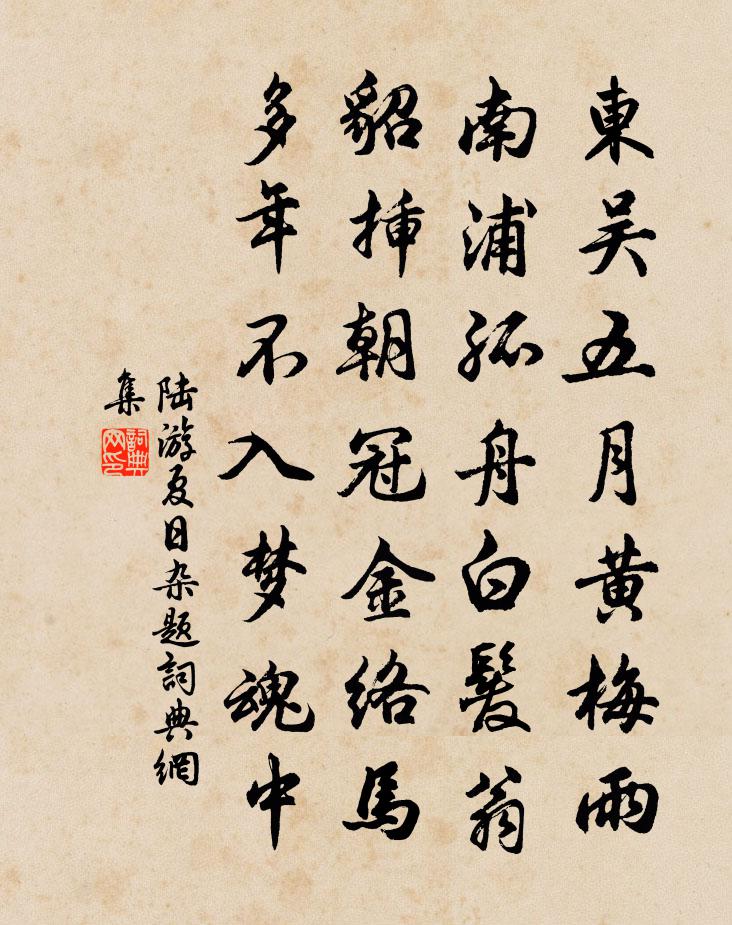 東吴五月黄梅雨
南浦孤舟白髮翁
貂插朝冠金络馬
多年不入梦魂中
陆游夏日杂题詞典網
集
詞典
网印